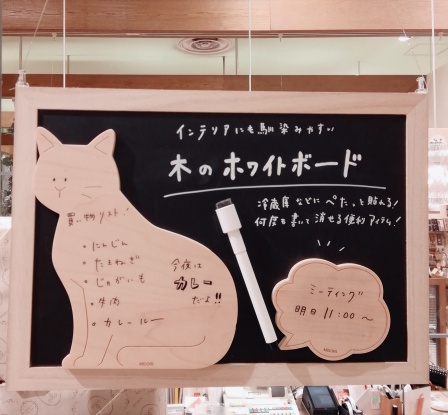 インテリアにも馴染みやすい
木のホワイトボード
冷蔵庫などにぺたっと貼れる!
何度も書いて消せる便利アイテム!
買い物リスト!
・にんじん
・たまねぎ
・じゃがいも
・牛肉
・カレールー
今夜は
カレー
だよ!!
ミーティング
明日 11:00~